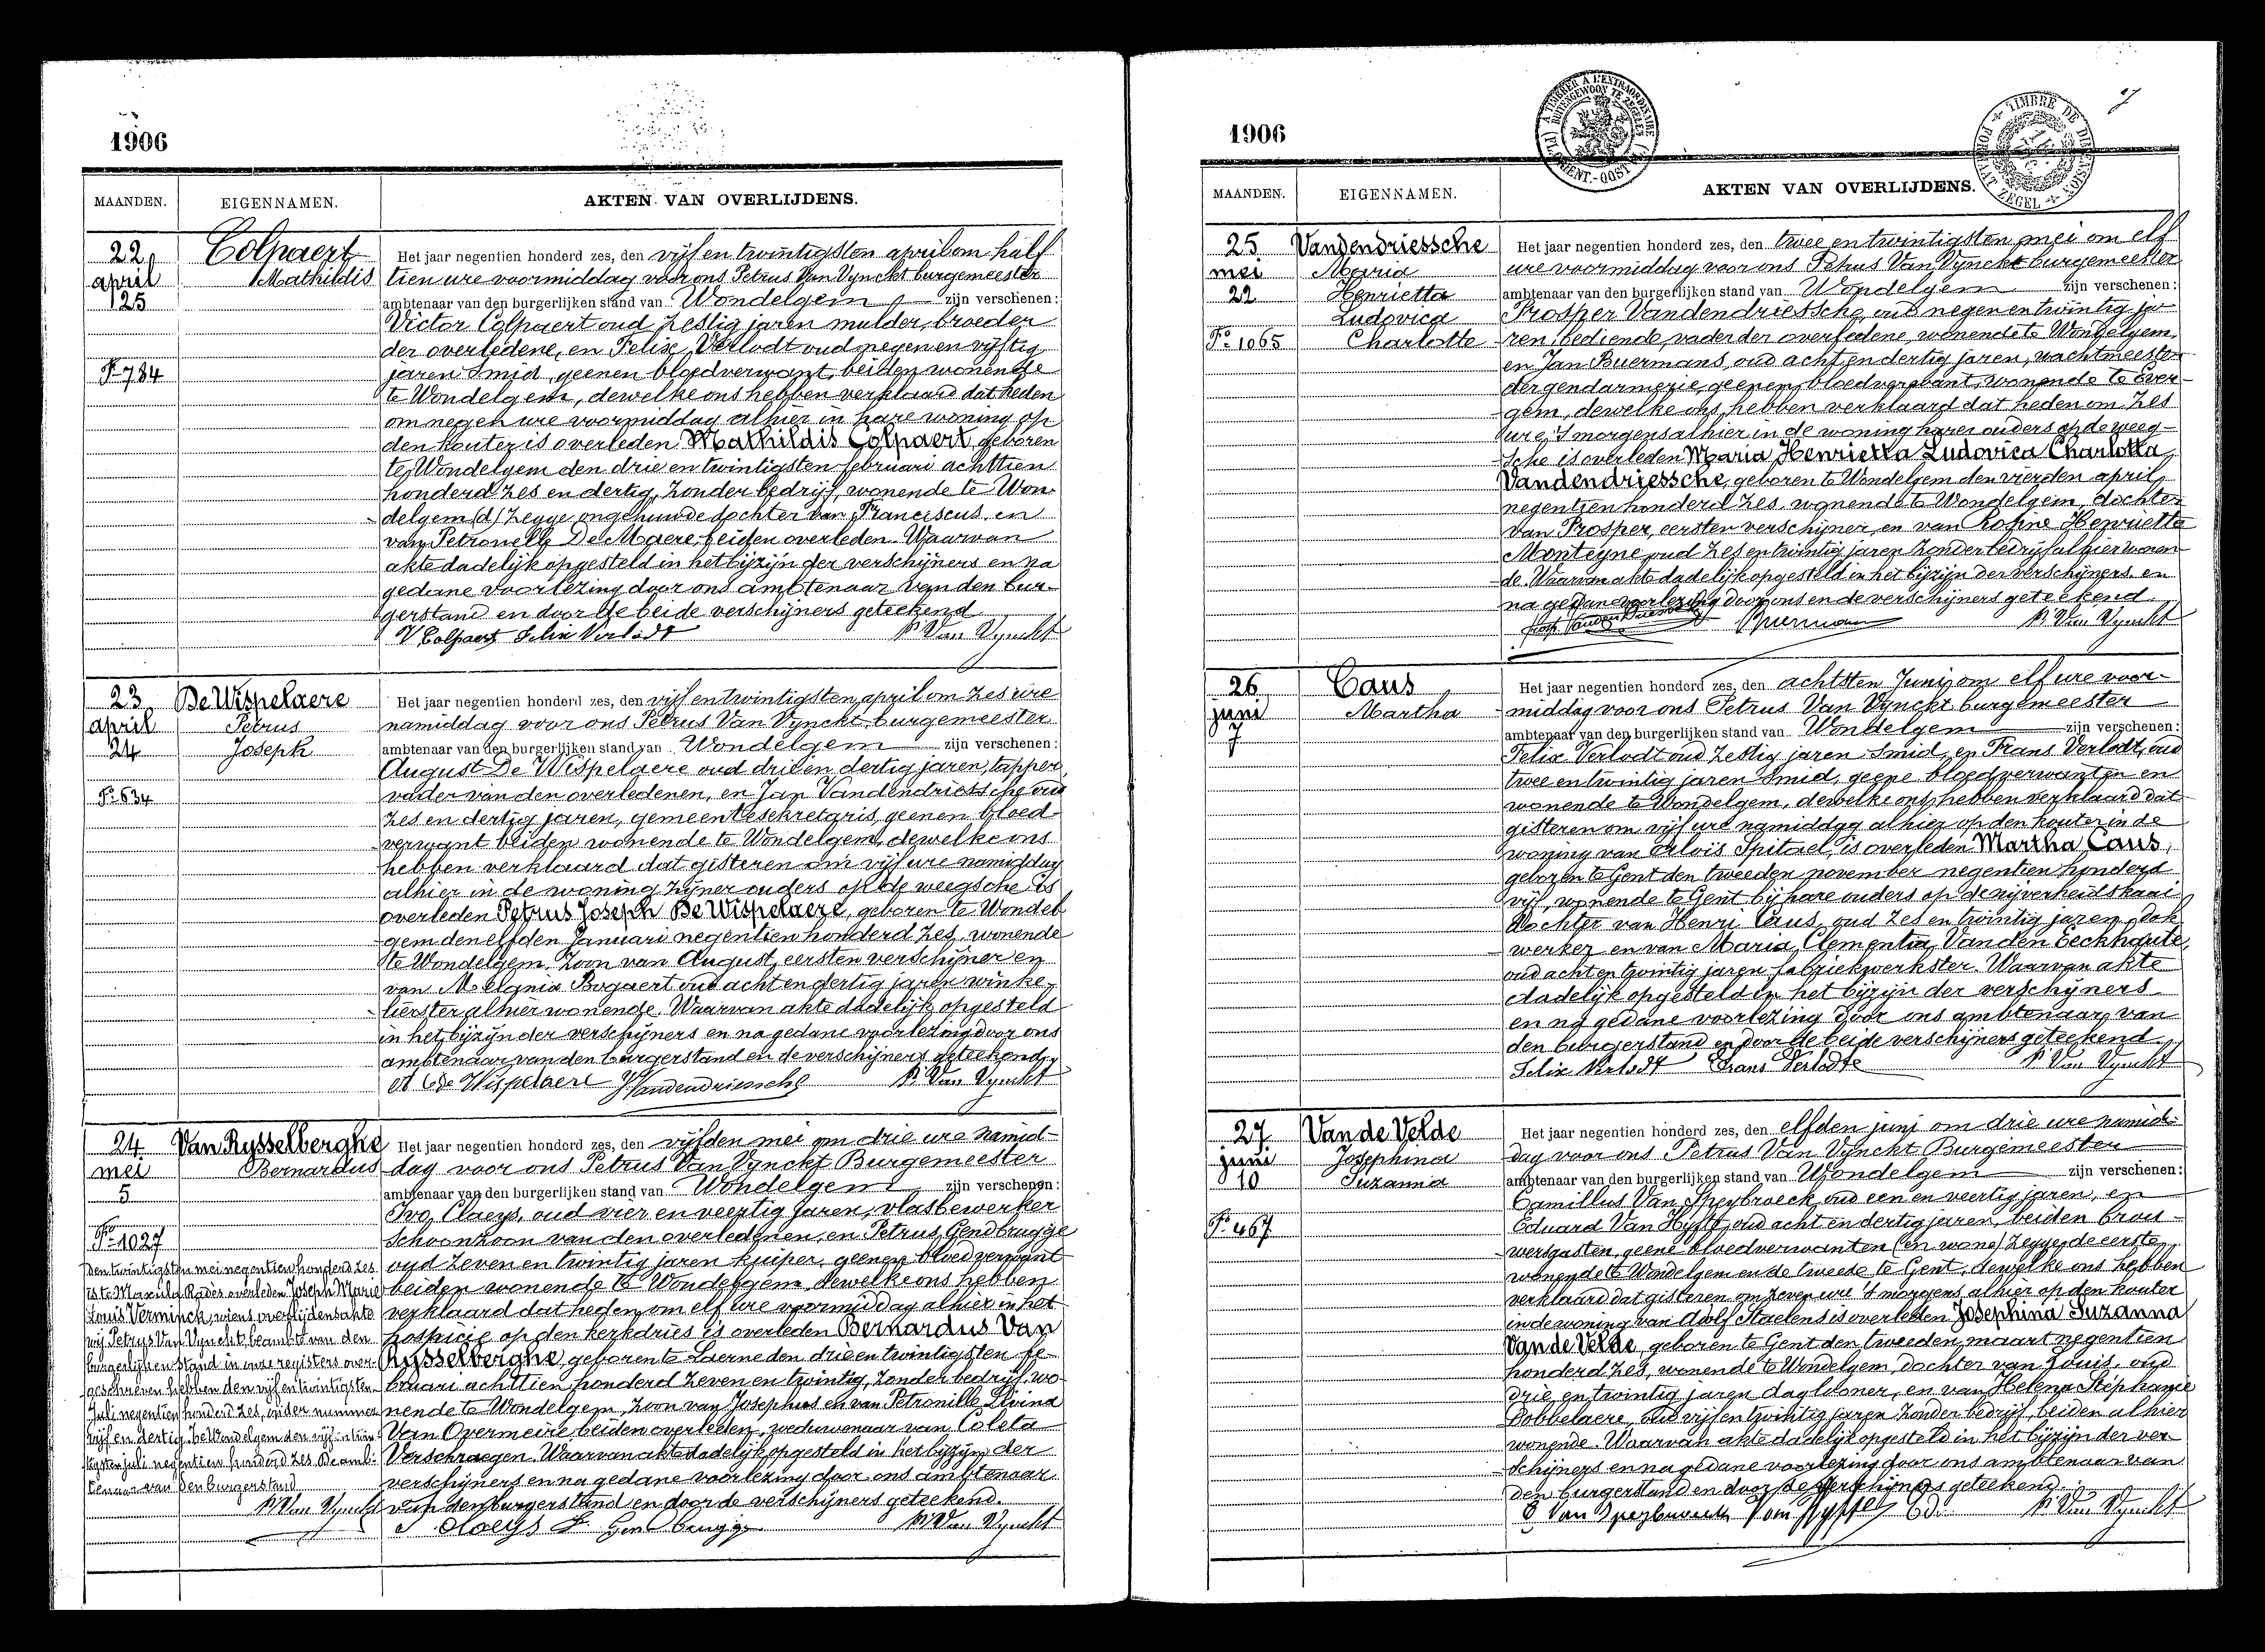 1906
MAANDEN. EIGENNAMEN. AKTEN VAN OVERLIJDENS.
22 april 25
F° 784
Colpaert
Mathildis
Het jaar negentien honderd zes, den vijf en twintigsten april om half
tien ure voormiddag voor ons Petrus Van Vynckt burgemeester
ambtenaar van den burgerlijken stand van Wondelgem zijn verschenen:
Victor Colpaert oud zestig jaren mulder, broeder
der overledene, en Felix Verlodt oud negen en vijftig
jaren smid, geenen bloedverwant, beiden wonende
te Wondelgem, dewelke ons hebben verklaard dat heden
om negen ure voormiddag alhier in hare woning op
den kouter is overleden Mathildis Colpaert, geboren
te Wondelgem den drie en twintigsten februari achttien
honderd zes en dertig, zonder bedrijf, wonende te Won-
delgem (d) zegge ongehuwde dochter van Franciscus en
van Petronella De Maere, beiden overleden. Waarvan
akte dadelijk opgesteld in het bijzijn der verschijners en na
gedane voorlezing door ons ambtenaar van den bur-
gerstand en door de beide verschijners geteekend
V Colpaert Felix Verlodt P. Van Vynckt
23
april
24
F° 634
De Wispelaere
Petrus
Joseph
Het jaar negentien honderd zes, den vijf en twintigsten april om zes ure
namiddag voor ons Petrus Van Vynckt burgemeester
ambtenaar van den burgerlijken stand van Wondelgem zijn verschenen:
August De Wispelaere oud drie en dertig jaren, tapper
vader van den overledenen, en Jan Vandendriessche oud
zes en dertig jaren, gemeentesekretaris, geenen bloed-
verwant beiden wonende te Wondelgem, dewelke ons
hebben verklaard dat gisteren om vijf ure namiddag
alhier in de woning zijner ouders op de weegsche is
overleden Petrus Joseph De Wispelaere, geboren te Wondel-
gem den elfden Januari negentien honderd zes, wonende
te Wondelgem. Zoon van August, eersten verschijner en
van Melania Bogaert oud acht en dertig jaren winke-
lierster alhier wonende. Waarvan akte dadelijk opgesteld
in het bijzijn der verschijners en na gedane voorlezing door ons
ambtenaar van den burgerstand en de verschijners geteekend.
A De Wispelaere JVandendriessche P. Van Vynckt
24
mei
5
F° 1027
Van Rysselberghe
Bernardus
Den twintigsten mei negentien honderd zes
is te overleden Joseph Marie
Louis Verminck, wiens overlijdensakte
wij Petrus Van Vynckt beambte van den
burgerlijken stand in onze registers over-
geschreven hebben den vijf en twintigsten
Juli negentien honderd zes, onder nummer
vijf en dertig. Te Wondelgem den vijf en twin-
tigsten juli negentien honderd zes. De amb-
tenaar van den burgerstand
P. Van Vynckt
Het jaar negentien honderd zes, den vijfden mei om drie ure namid-
dag voor ons Petrus Van Vynckt Burgemeester
ambtenaar van den burgerlijken stand van Wondelgem zijn verschenen:
Ivo Claeys, oud vier en veertig jaren, vlasbewerker
schoonzoon van den overledenen, en Petrus Gendbrugge
oud zeven en twintig jaren kuiper, geenen bloedverwant
beiden wonende te Wondelgem, dewelke ons hebben
verklaard dat heden om elf ure voormiddag alhier in het
hospicie op den kerkdries is overleden Bernardus Van
Rysselberghe, geboren te Laerne den drie en twintigsten fe-
bruari achttien honderd zeven en twintig, zonder bedrijf, wo-
nende te Wondelgem, zoon van Josephus en van Petronille Livina
Van Overmeire beiden overleden, weduwenaar van Coleta
Verschraegen. Waarvan akte dadelijk opgesteld in het bijzijn der
verschijners en na gedane voorlezing door ons ambtenaar
van den burgerstand en door de verschijners geteekend.
I Claeys P. Gendbrugge P. Van Vynckt
7
1906
MAANDEN. EIGENNAMEN. AKTEN VAN OVERLIJDENS.
25
mei
22
F° 1065
Vandendriessche
Maria
Henrietta
Ludovica
Charlotte
Het jaar negentien honderd zes, den twee en twintigsten mei om elf
ure voormiddag voor ons Petrus Van Vynckt burgemeester
ambtenaar van den burgerlijken stand van Wondelgem zijn verschenen:
Prosper Vandendriessche, oud negen en twintig ja-
ren, bediende, vader der overledene, wonende te Wondelgem,
en Jan Buermans, oud acht en dertig jaren, wachtmeester
der gendarmerie, geenen bloedverwant, wonende te Ever-
gem, dewelke ons hebben verklaard dat heden om zes
ure 's morgens alhier in de woning harer ouders op de weeg-
sche is overleden Maria Henrietta Ludovica Charlotta
Vandendriessche, geboren te Wondelgem den vierden april
negentien honderd zes, wonende te Wondelgem, dochter
van Prosper, eersten verschijner, en van Rosine Henriette
Monteyne oud zes en twintig jaren zonder bedrijf alhier wonen-
de. Waarvan akte dadelijk opgesteld in het bijzijn der verschijners en
na gedane voorlezing door ons en de verschijners geteekend.
Buermans P. Van Vynckt
26
juni
7
Caus
Martha
Het jaar negentien honderd zes, den achtsten Juni om elf ure voor-
middag voor ons Petrus Van Vynckt burgemeester
ambtenaar van den burgerlijken stand van Wondelgem zijn verschenen:
Felix Verlodt oud zestig jaren smid, en Frans Verlodt, oud
twee en twintig jaren smid, geene bloedverwanten en
wonende te Wondelgem, dewelke ons hebben verklaard dat
gisteren om vijf ure namiddag alhier op den kouter in de
woning van Aloïs Spitael, is overleden Martha Caus,
geboren te Gent den tweeden november negentien honderd
vijf, wonende te Gent bij hare ouders op de nijverheidskaai
Dochter van Henri Caus, oud zes en twintig jaren, dok
werker en van Maria Clementia Van den Eeckhoute,
oud acht en twintig jaren fabriekwerkster. Waarvan akte
dadelijk opgesteld in het bijzijn der verschijners
en na gedane voorlezing door ons ambtenaar van
den burgerstand en door de beide verschijners geteekend.
Felix Verlodt Frans Verlodt P. Van Vynckt
27
juni
10
F° 467
Van de Velde
Josephina
Suzanna
Het jaar negentien honderd zes, den elfden juni om drie ure namid-
dag voor ons Petrus Van Vynckt Burgemeester
ambtenaar van den burgerlijken stand van Wondelgem zijn verschenen:
Camillus Van Speybroeck oud een en veertig jaren, en
Eduard Van Hyfft, oud acht en dertig jaren, beiden brou-
wersgasten, geene bloedverwanten (en wone) zegge de eerste
wonende te Wondelgem en de tweede te Gent, dewelke ons hebben
verklaard dat gisteren om zeven ure 's morgens alhier op den kouter
in de woning van Adolf Staelens is overleden Josephina Suzanna
Van de Velde, geboren te Gent den tweeden maart negentien
honderd zes, wonende te Wondelgem, dochter van Louis, oud
drie en twintig jaren dagloner, en van Helena Stéphanie
Dobbelaere, oud vijf en twintig jaren zonder bedrijf, beiden alhier
wonende. Waarvan akte dadelijk opgesteld in het bijzijn der ver-
schijners en na gedane voorlezing door ons ambtenaar van
den burgerstand en door de verschijners geteekend.
C Van Speybroeck Van Hyfft Ed. P. Van Vynckt